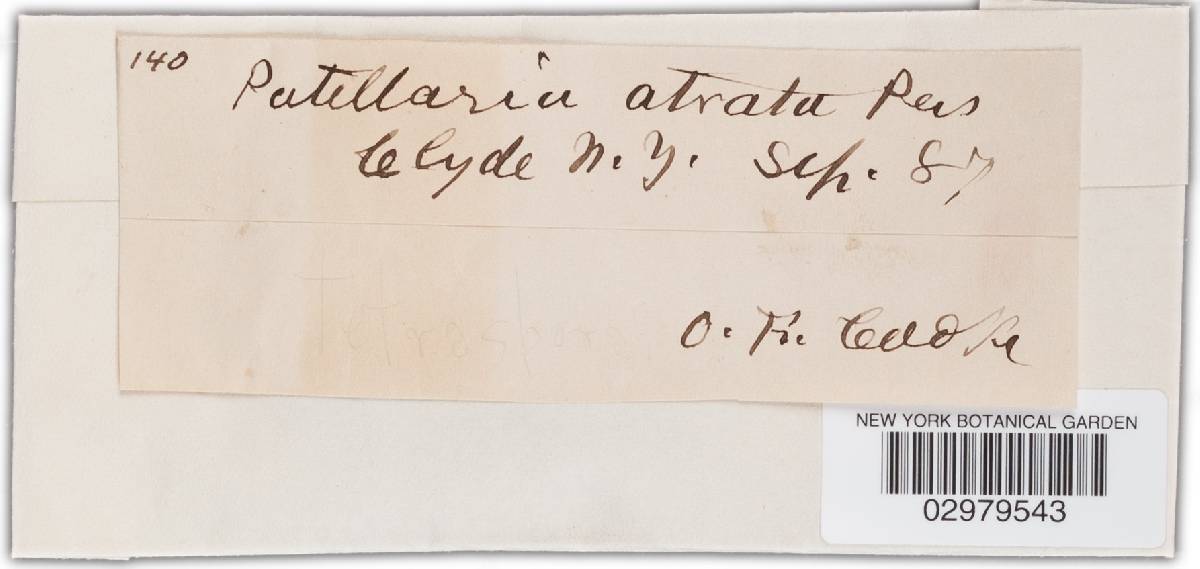 140
Patellaria atrata Pers
Clyde N. Y. Sep. 87
O. F. Cooke
NEW YORK BOTANICAL GARDEN
02979543